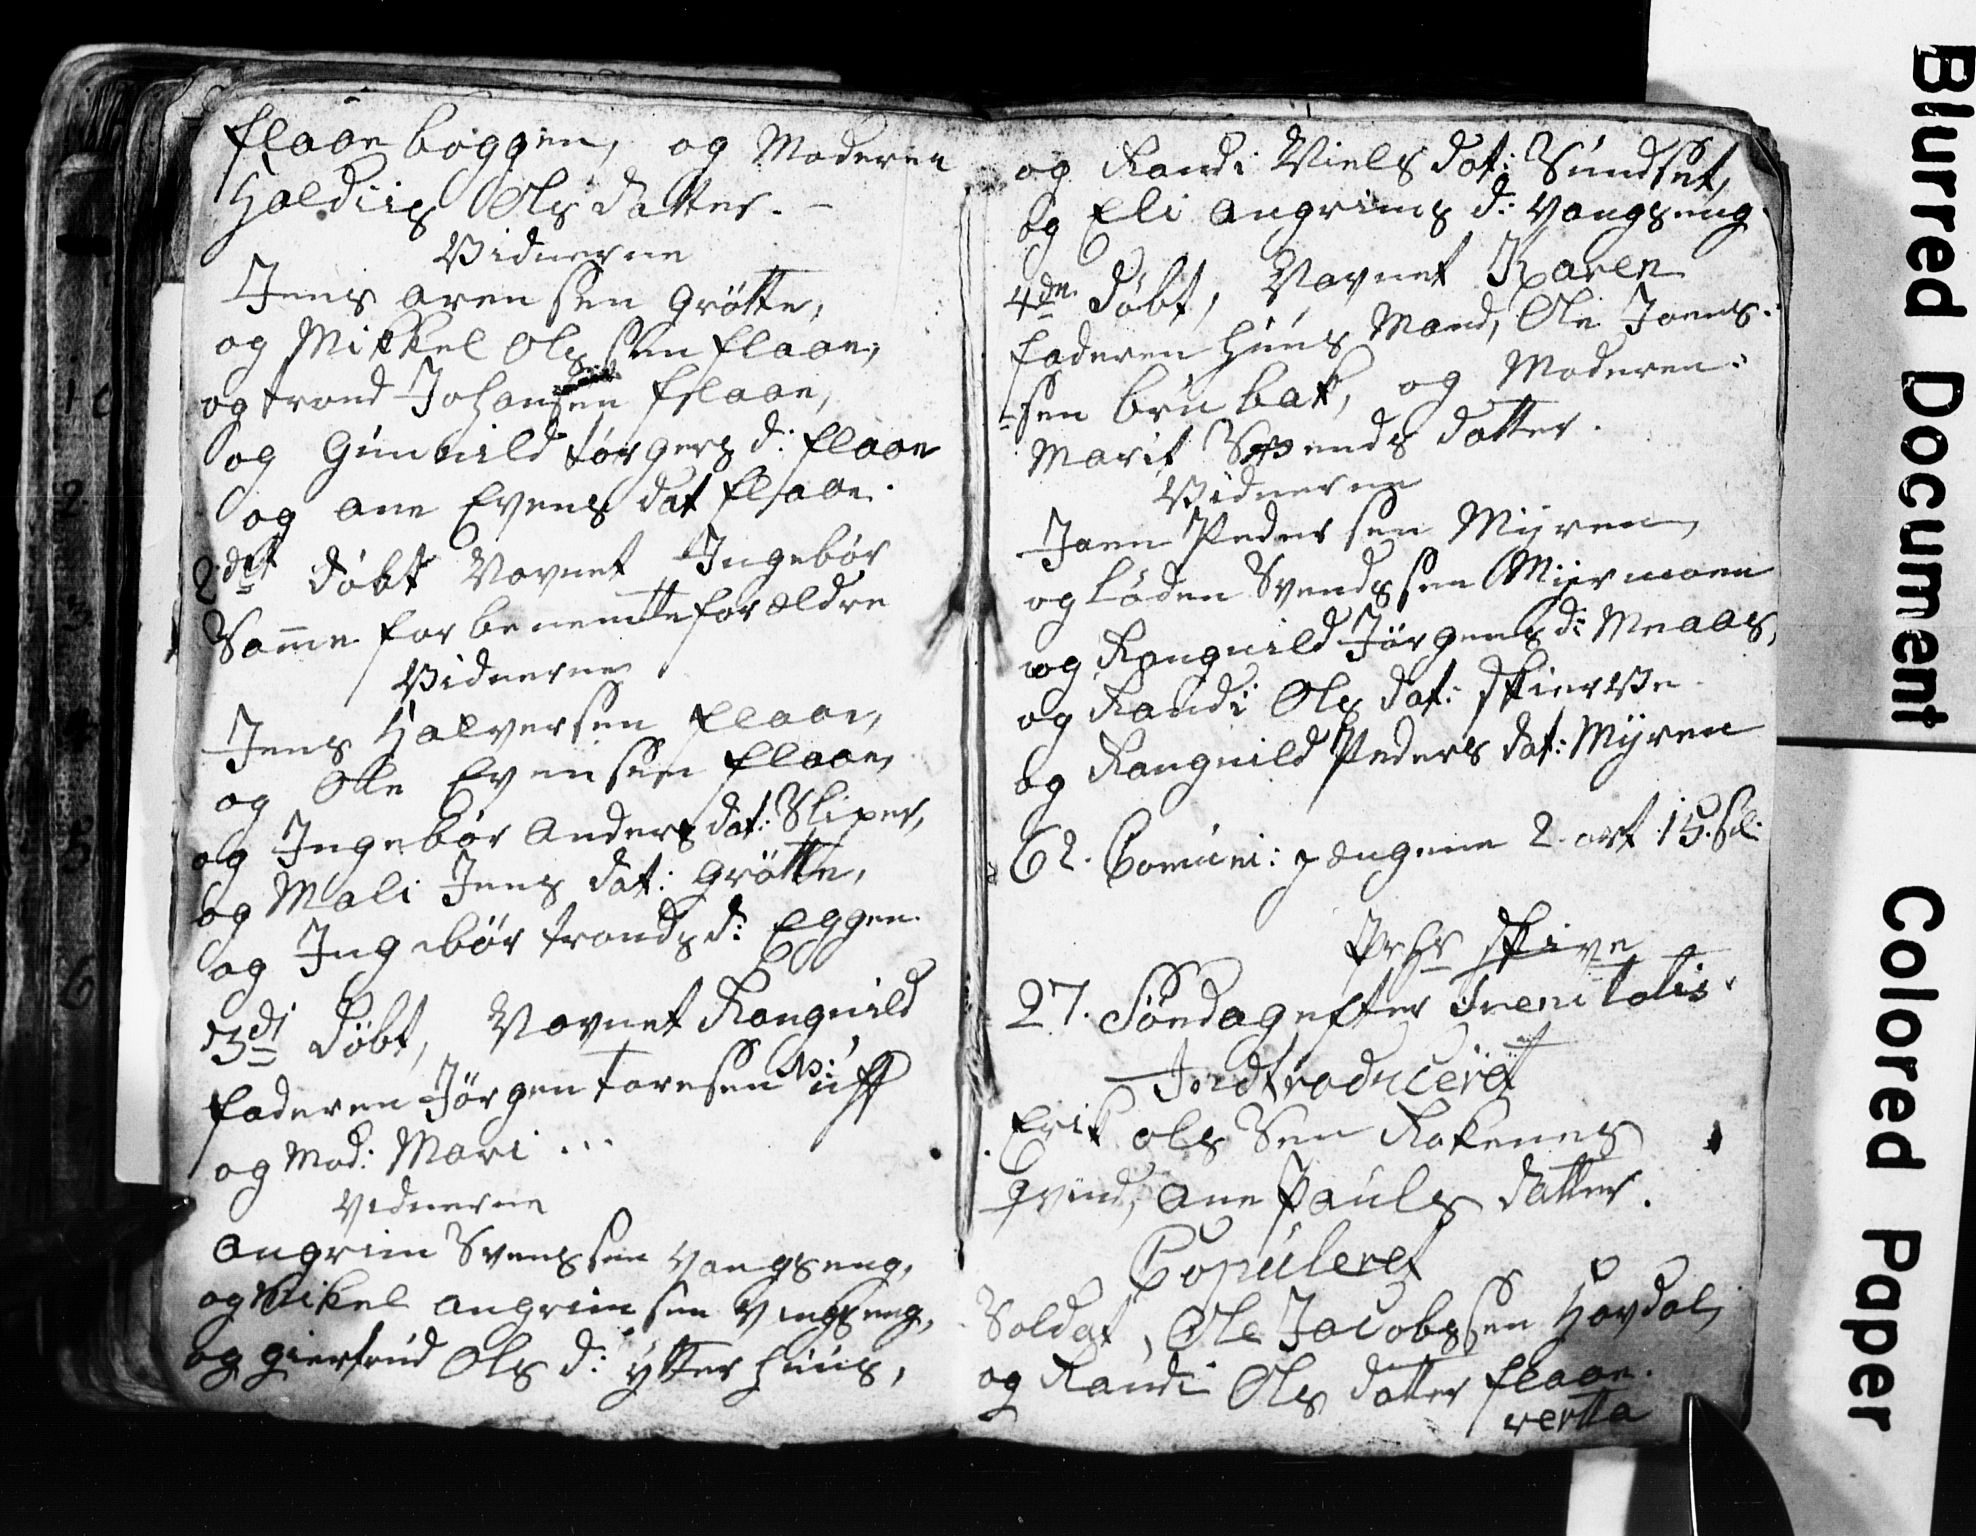 flaae boggen, og Moderen
Haldiis Ols datter. –
Vidnerne
Jens aren sen Grøtte,
og Mikkel Ols sen flaae,
og trond Johansen flaae,
og Gunnild tørgers d: flaae
og ane Evens dat flaae.
2det døbt Navnet Ingebør
Same forbenemte forældre
Vidnerne
Jens Halversen flaae,
og Ole Evensen flaae,
og Ingebør anders dat: Sliper,
og Mali Jens dat: Grøtte,
og Ingebør tronds d: Eggen
3di døbt, Navnet Rangnild
faderen Jørgen toresen
og Mod: Mari ...
Vidnerne
angrim Svenssen Vangseng,
og Mikel angrimsen Vngseng,
og giertrud Ols d: ytterhuus,
og Randi Niels dat: Sundset,
og Eli angrims d: Vangseng
4de døbt, Navnet Karen
faderen huus Mand, Ole Joens:
-sen brubak, og Moderen:
Marit Svends datter.
Vidnerne
Joen Peder sen Myren,
og Loden Svends sen Myrmoen
og Rangnild Jørgens d: Meaas,
og Randi Ols dat: Skierve
og Rangnild Peders dat: Myren
62. Comuni: 2 ort 15. sl:
27. Søndag efter Trenitatis.
Indtroduceret
Erik ols Sen Rokenes
qvind, ane Pauls datter.
Copuleret
Soldat, Ole Jacobssen Hovdal,
og Randi Ols datter flaae.
vertta
Blurred Document
Colored Paper